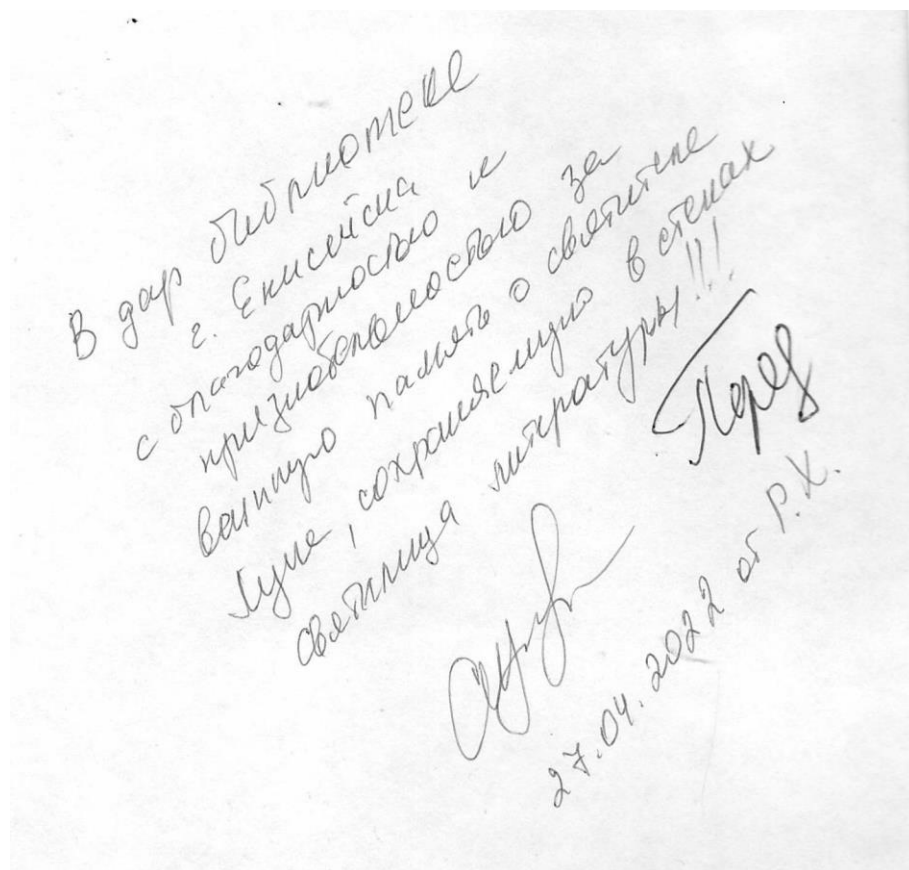 В дар библиотеке
г. Енисейска
с благодарностью и
признательностью за
память о святителе
Луке, сохраняемую в стенах
святилища литературы!!!
27.04.2022 от Р.Х.